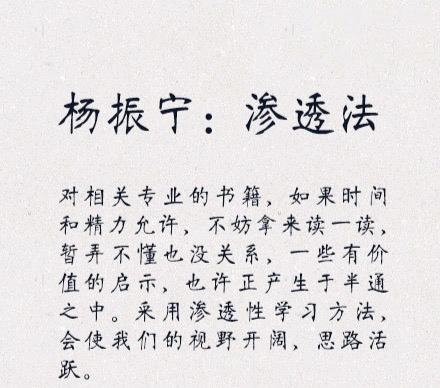 杨振宁：渗透法
对相关专业的书籍，如果时间
和精力允许，不妨拿来读一读，
暂弄不懂也没关系，一些有价
值的启示，也许正产生于半通
之中。采用渗透性学习方法，
会使我们的视野开阔，思路活
跃。